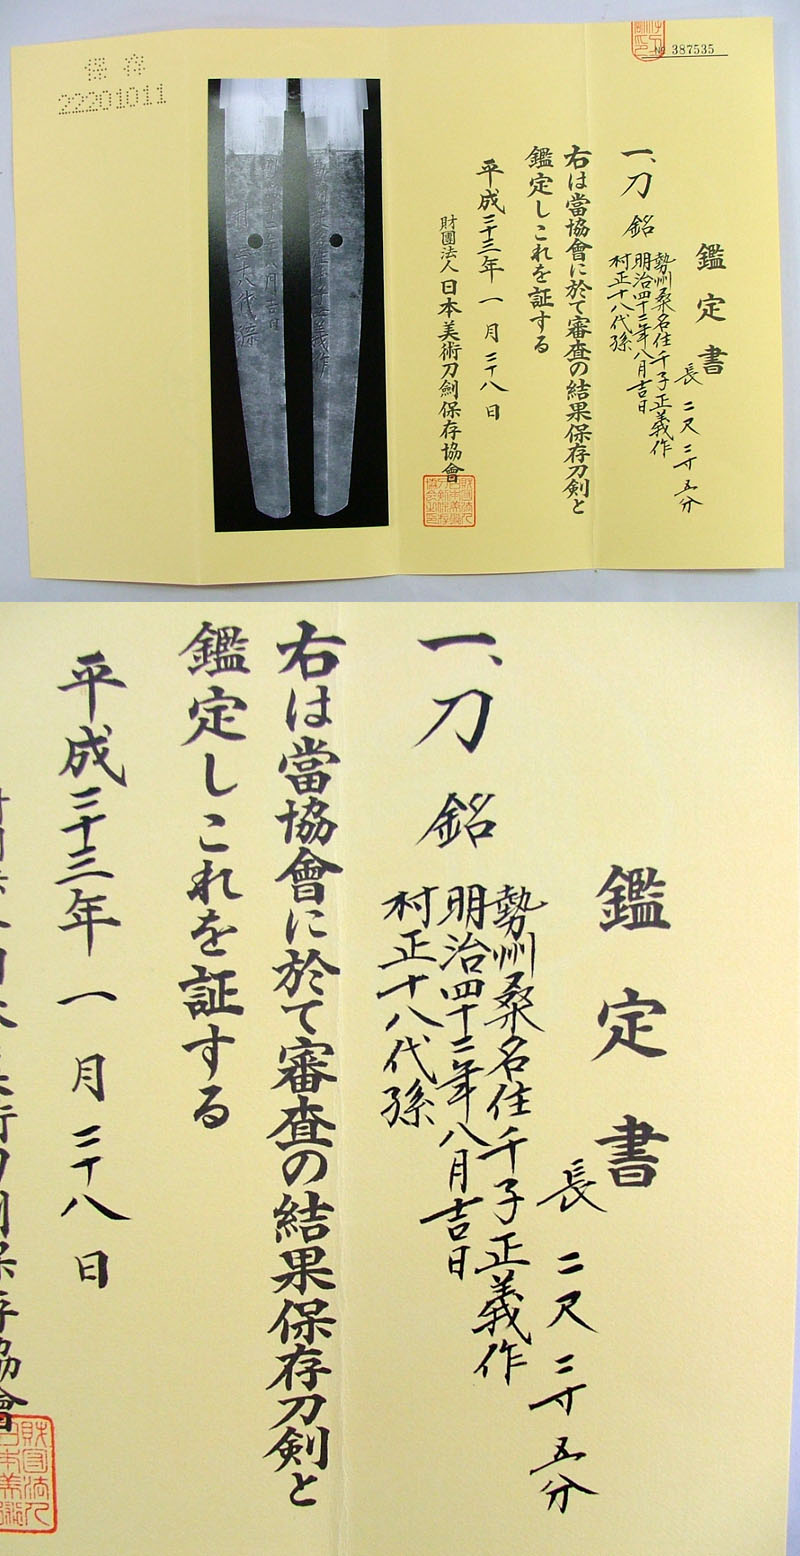 保存
22201011
№ 387535
鑑定書
長 二尺三寸五分
一、刀 銘
勢州桑名住千子正義作
明治四十二年八月吉日
村正十八代孫
右は當協會に於て審査の結果保存刀剣と
鑑定しこれを証する
平成二十三年一月二十八日
財團法人日本美術刀劍保存協會
鑑定書
長 二尺三寸五分
一、刀 銘
勢州桑名住千子正義作
明治四十二年八月吉日
村正十八代孫
右は當協會に於て審査の結果保存刀剣と
鑑定しこれを証する
平成二十三年一月二十八日